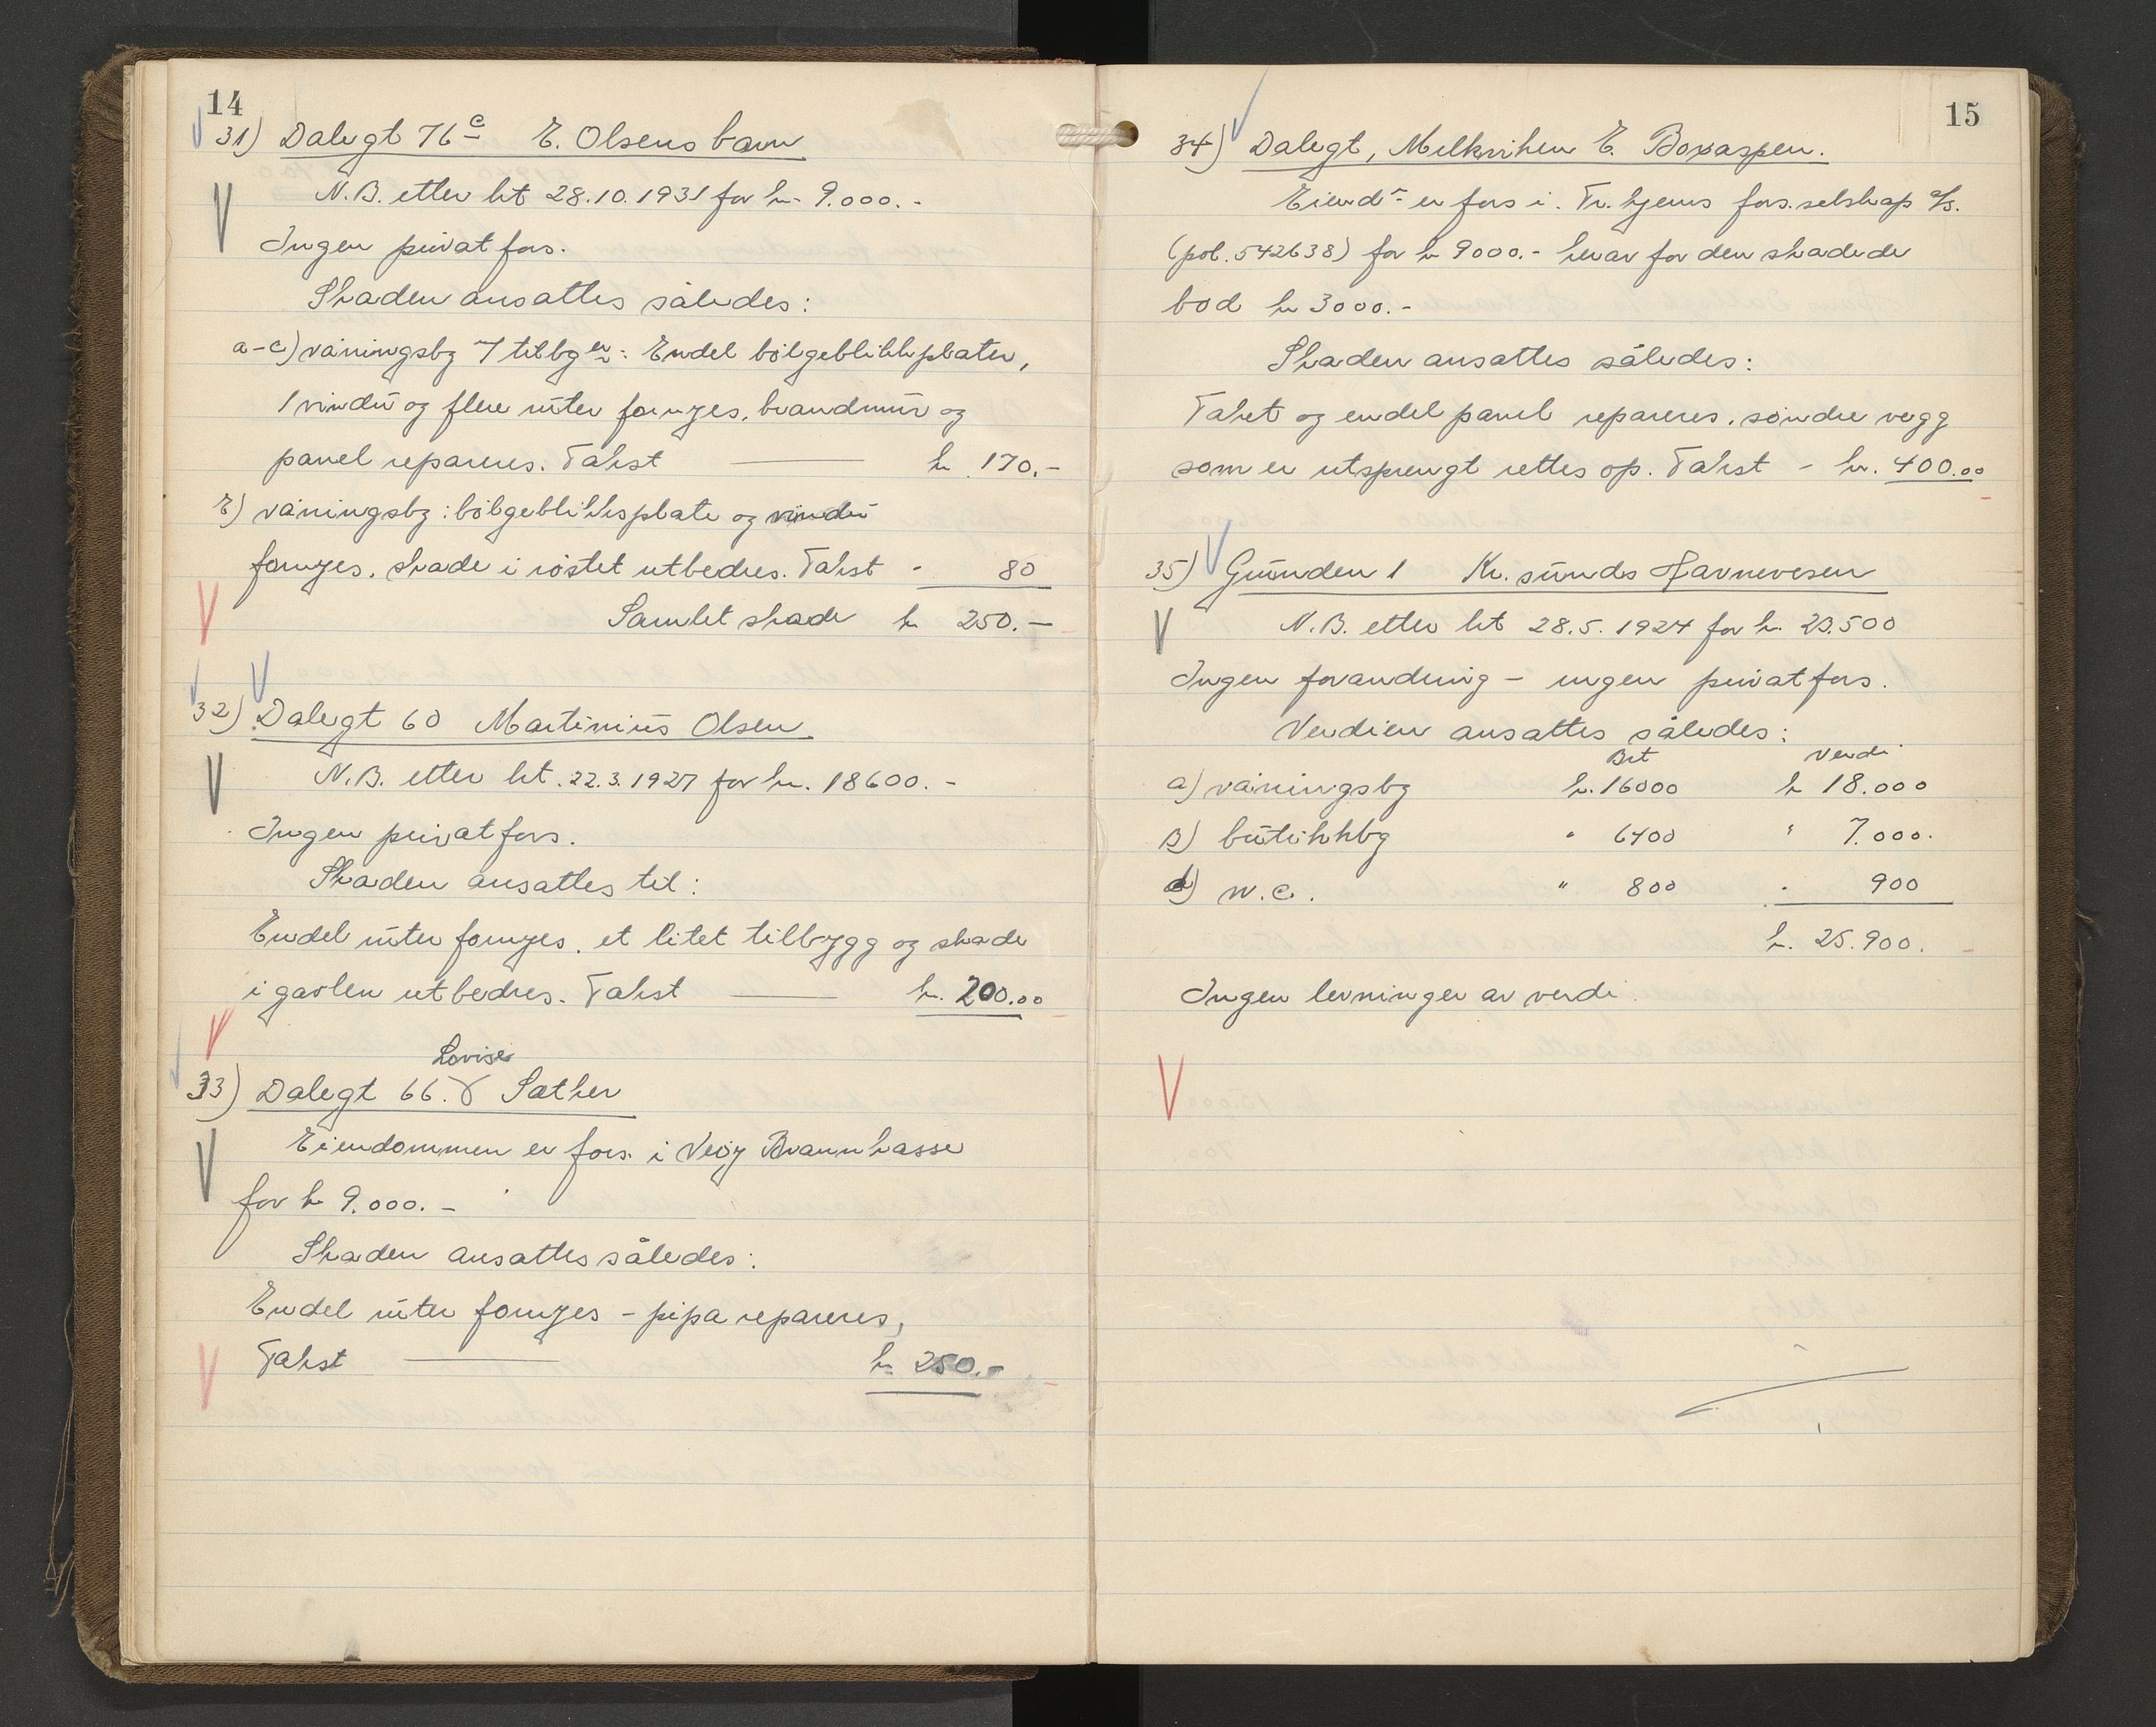 14
31) Dalegt 76c E. Olsens barn
N.B. etter br't 28.10.1931 for kr. 9.000.-
Ingen privat fors.
Skaden ansattes således:
a-c) våningsbg 7 tilbger: Endel bölgeblikkplater,
1 vindu og flere ruter fornyes, brandmur og
panel repareres. Takst — kr. 170.-
E) våningsbg: bölgeblikksplate og vindu
fornyes. Skade i röstet utbedres. Takst - 80
Samlet skade kr 250.-
32) Dalegt 60 Martinius Olsen
N.B. etter br't. 22.3.1927 for kr. 18600.-
Ingen privat fors.
Skaden ansattes til:
Endel ruter fornyes, et litet tilbygg og skade
i gavlen utbedres. Takst — kr. 200.00
Lovise
33) Dalegt 66. Sæther
Eiendommen er fors. i Veöy Brannkasse
for kr 9.000.-
Skaden ansattes således:
Endel ruter fornyes - pipa repareres,
Takst — kr 250.-
15
34) Dalegt, Melkviken E. Boxaspen.
Eiend- er fors i. Tr.hjems fors.selskap a/s.
(pol. 542638) for kr 9000.- herav for den skadede
bod kr 3000.-
Skaden ansattes således:
Taket og endel panel repareres, söndre vegg
som er utsprengt rettes op. Takst - kr. 400.00
35) Grunden 1 Kr.sunds Havnevesen
N.B. etter br't 28.5.1924 for kr. 23.500
Ingen forandring - ingen privat fors.
Verdien ansattes således:
Brt Verdi
a) våningsbg kr. 16000 kr 18.000
B) butikkbg " 6400 " 7.000.
d) w.c. " 800 " 900
kr. 25.900.
Ingen levninger av verdi.